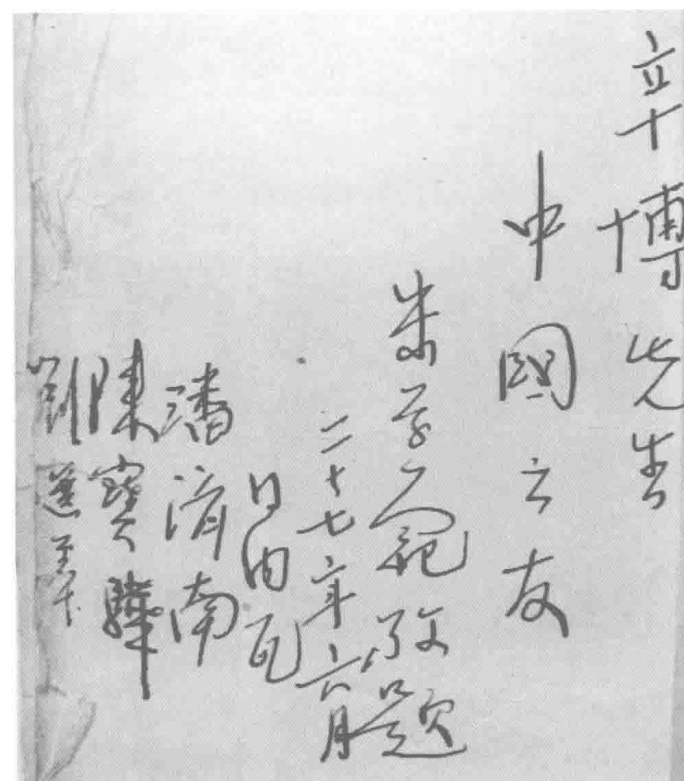 辛博先生
中國之友
朱學範敬題
二十七年六月
日内瓦
潘濟南
陳寶驊
劉選萃